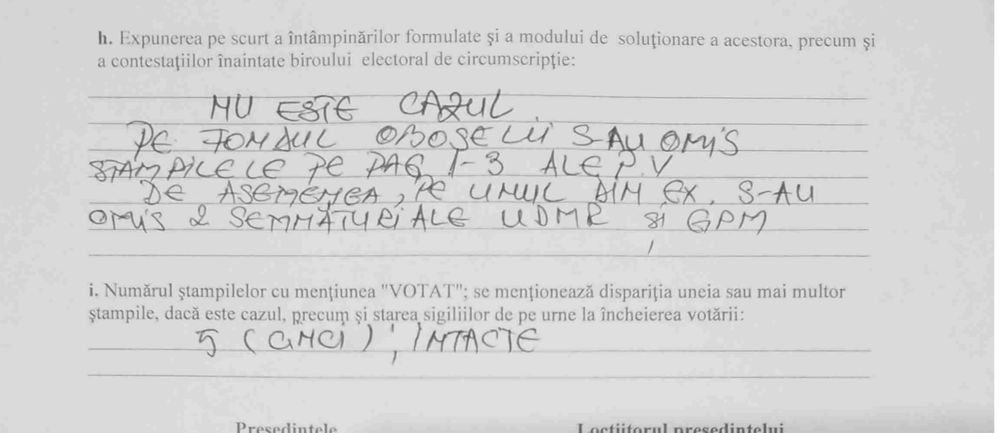 h. Expunerea pe scurt a întâmpinărilor formulate și a modului de soluționare a acestora, precum și
a contestațiilor înaintate biroului electoral de circumscripție:
NU ESTE CAZUL.
PE FONDUL OBOSELII S-AU OMIS
ȘTAMPILELE PE PAG 1-3 ALE P.V
DE ASEMENEA, PE UNUL DIN EX. S-AU
OMIS 2 SEMNĂTURI ALE UDMR și GPM
i. Numărul ștampilelor cu mențiunea "VOTAT"; se menționează dispariția uneia sau mai multor
ștampile, dacă este cazul, precum și starea sigiliilor de pe urne la încheierea votării:
5 (CINCI); INTACTE
Președintele Locțiitorul președintelui